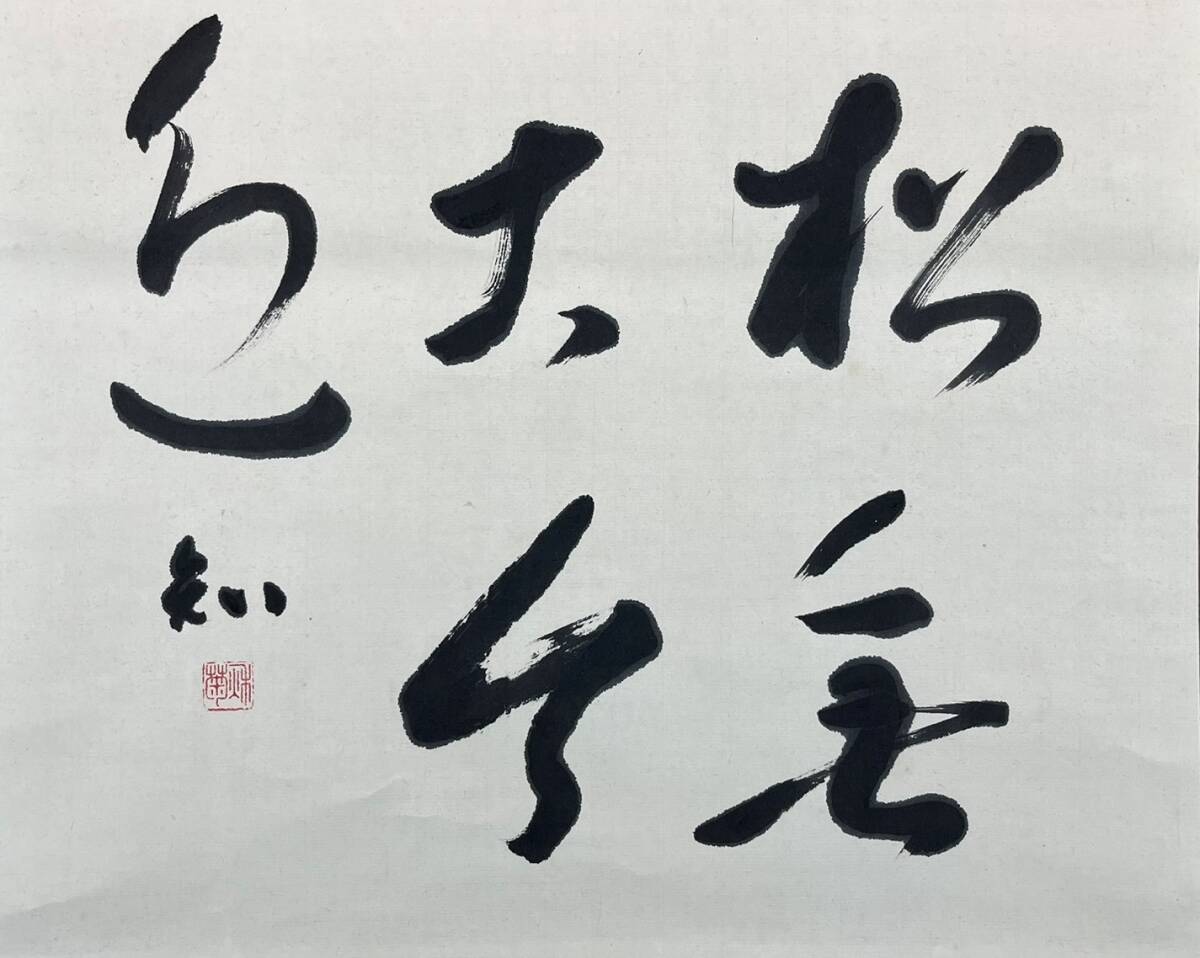 松無
古今
色